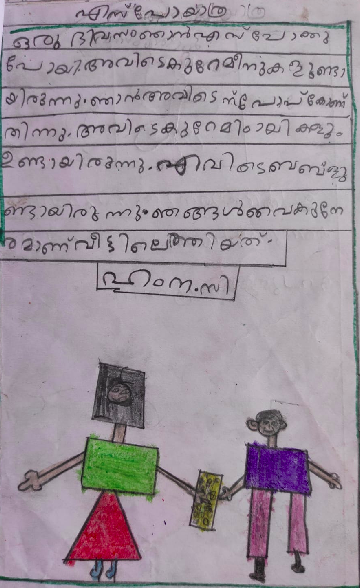 എസ്പോയാത്ര
ഒരു ദിവസംഞാൻഎസ് പോക്കു
പോയി.അവിടെകുറേമീനുകളുണ്ടാ
യിരുന്നു.ഞാൻഅവിടെ
തിന്നു.അവിടെകുറേമിഠായികളും
ഉണ്ടായിരുന്നു.എവിടെബബ്ളു
ണ്ടായിരുന്നു.ഞങ്ങൾവൈകുന്നേ
രമാണ്വീട്ടിലെത്തിയത്.
ഹംന.സി